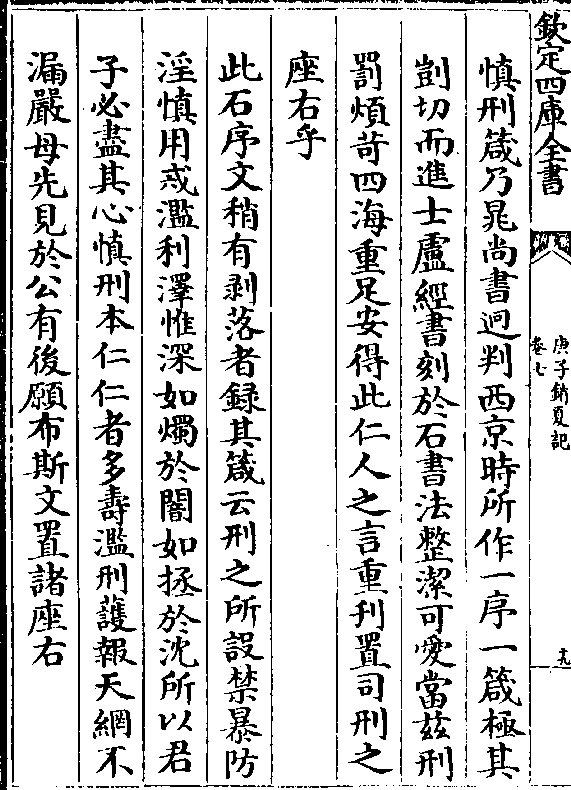 欽定四庫全書
庚子銷夏記
卷七
十九
慎刑箴乃晁尚書迥判西京時所作一序一箴極其
剴切而進士盧經書刻於石書法整潔可愛當兹刑
罰煩苛四海重足安得此仁人之言重刋置司刑之
座右乎
此石序文稍有剥落者録其箴云刑之所設禁暴防
淫慎用戒濫利澤惟深如燭於闇如拯於沈所以君
子必盡其心慎刑本仁仁者多壽濫刑䕶報天網不
漏嚴母先見於公有後願布斯文置諸座右